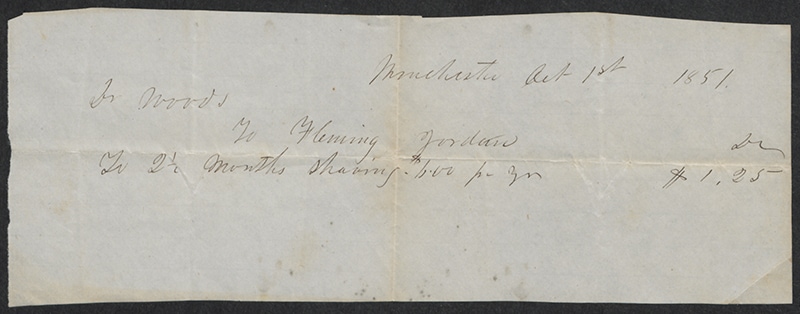 Winchester Oct 1st 1851.
Dr Woods
To Fleming Jordan Dr
To 2½ Months Shaving $6.00 pr yr $1.25